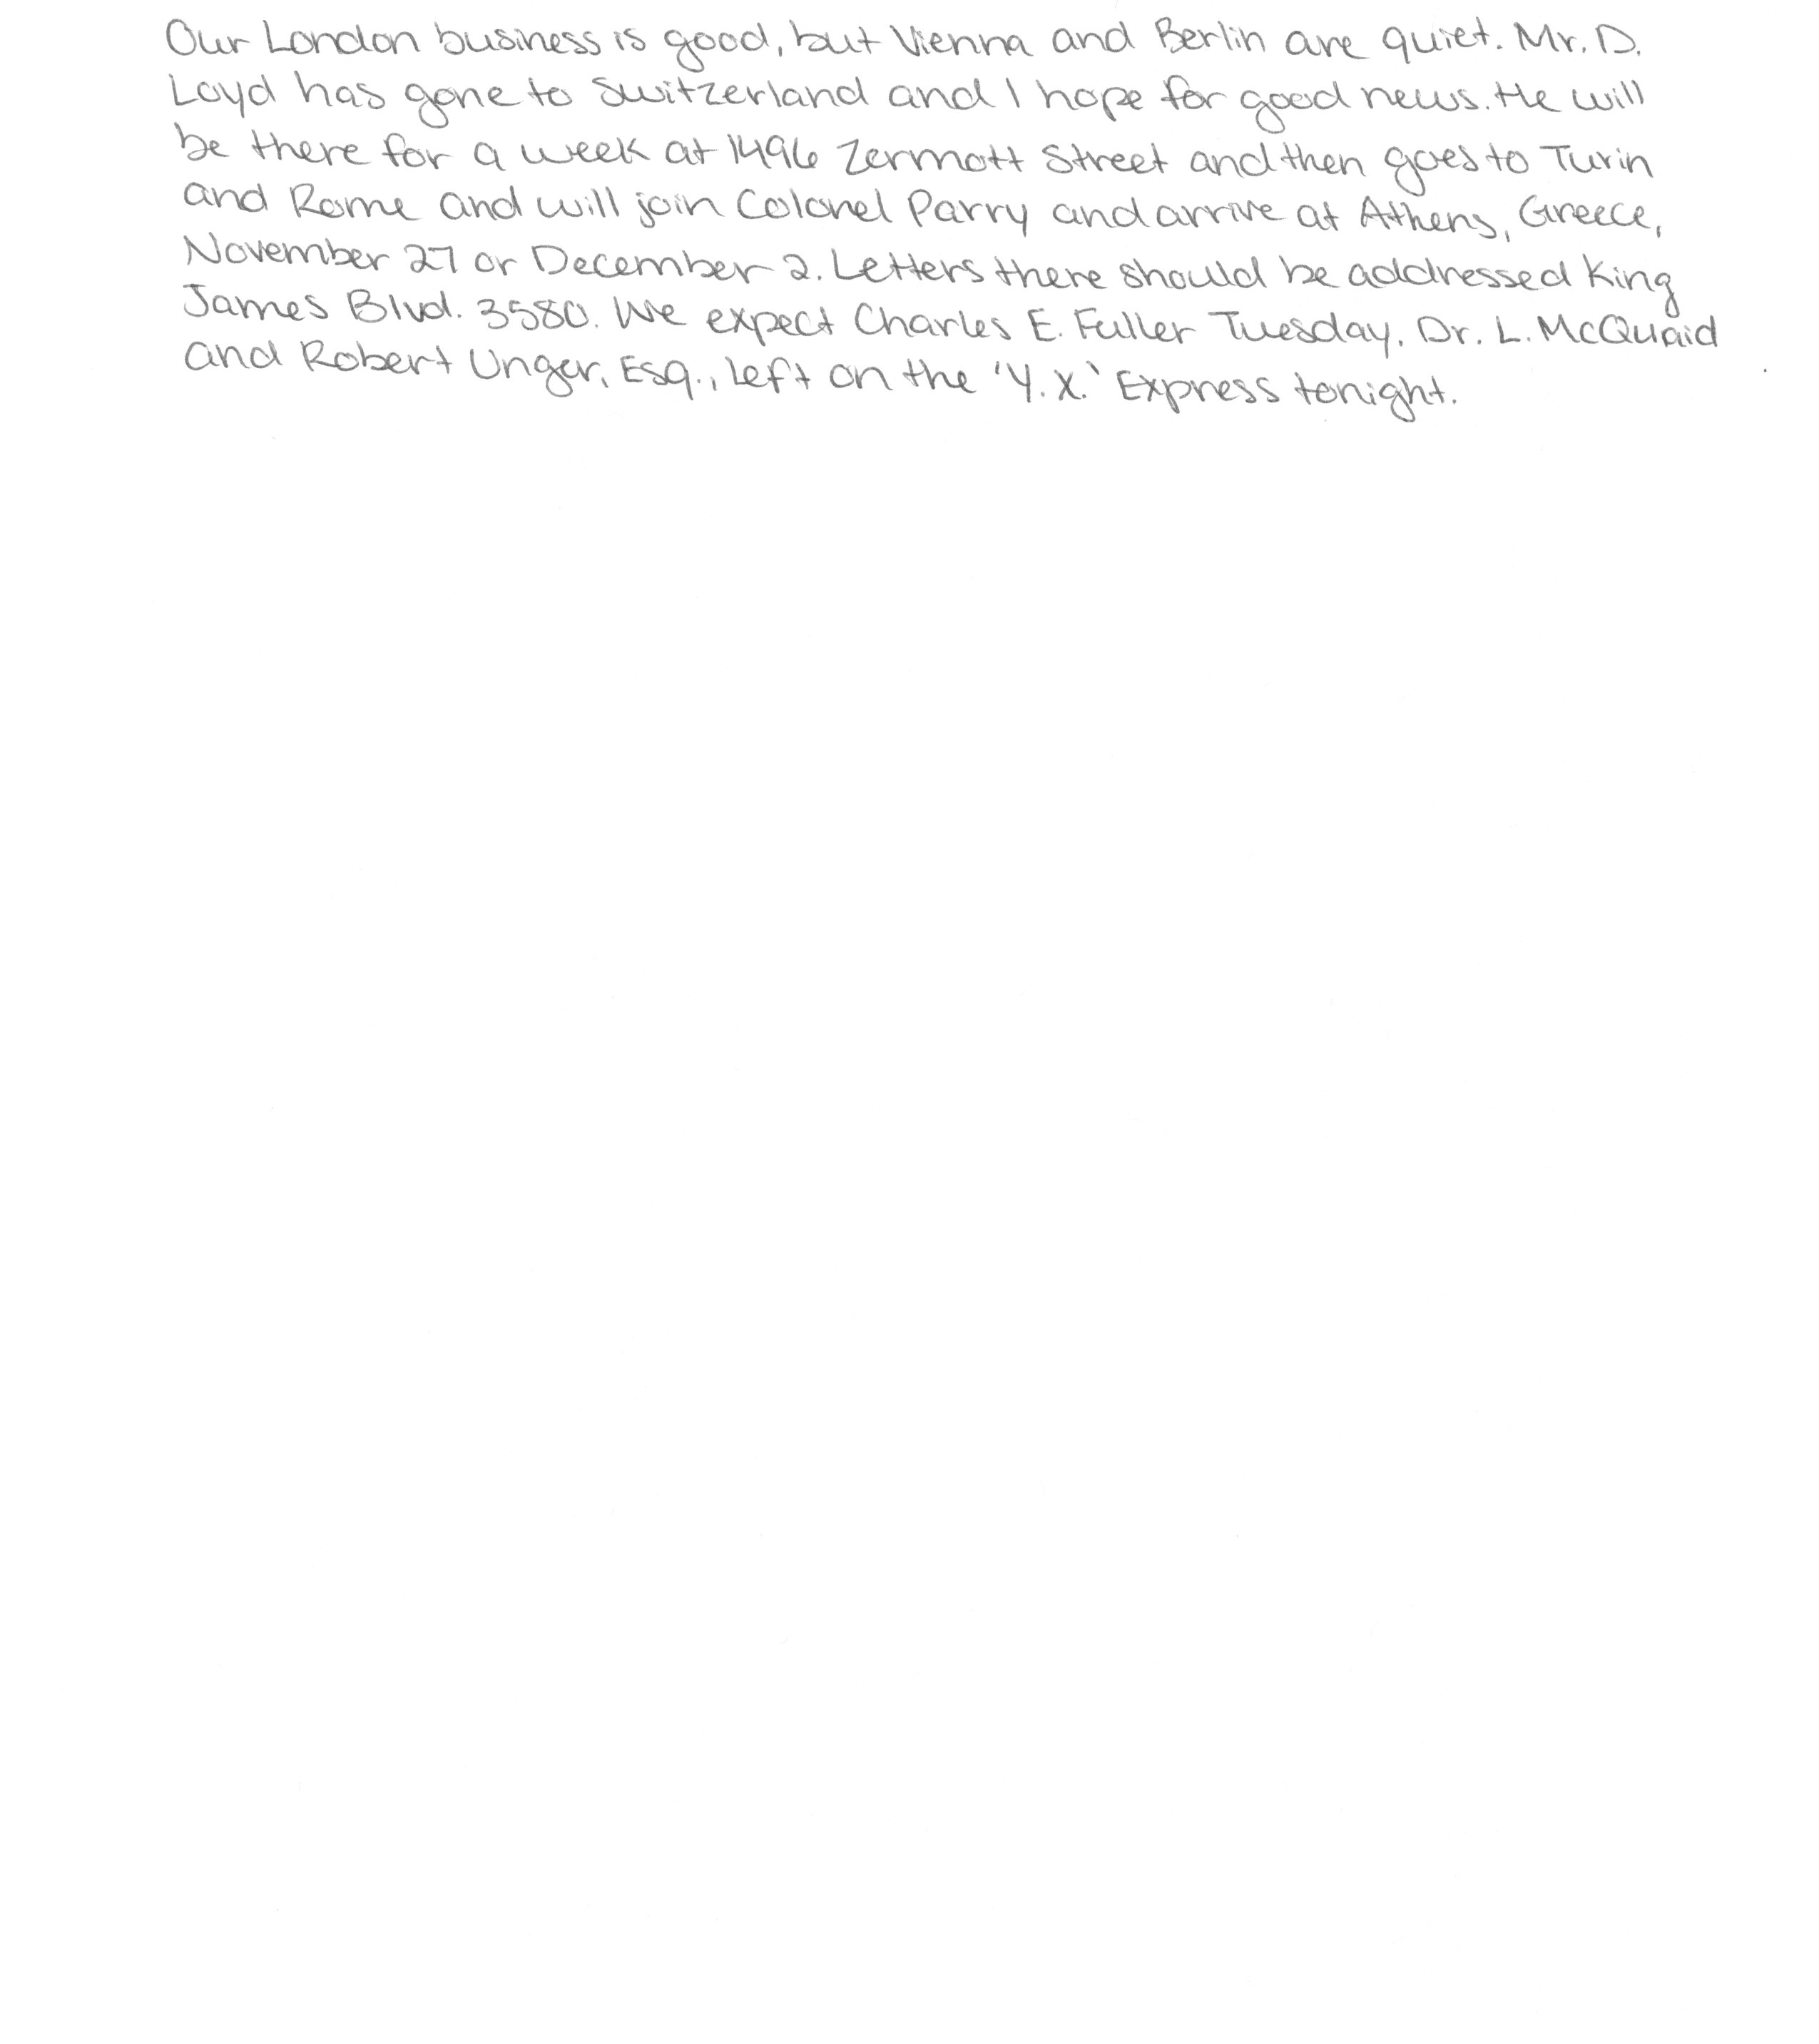 Our London business is good, but Vienna and Berlin are quiet. Mr. D.
Loyd has gone to Switzerland and I hope for good news. He will
be there for a week at 1496 Zermott Street and then goes to Turin
and Rome and will join Colonel Parry and arrive at Athens, Greece,
November 27 or December 2. Letters there should be addressed King
James Blvd. 3580. We expect Charles E. Fuller Tuesday. Dr. L. McQuaid
and Robert Unger, Esq., left on the 'Y.X.' Express tonight.